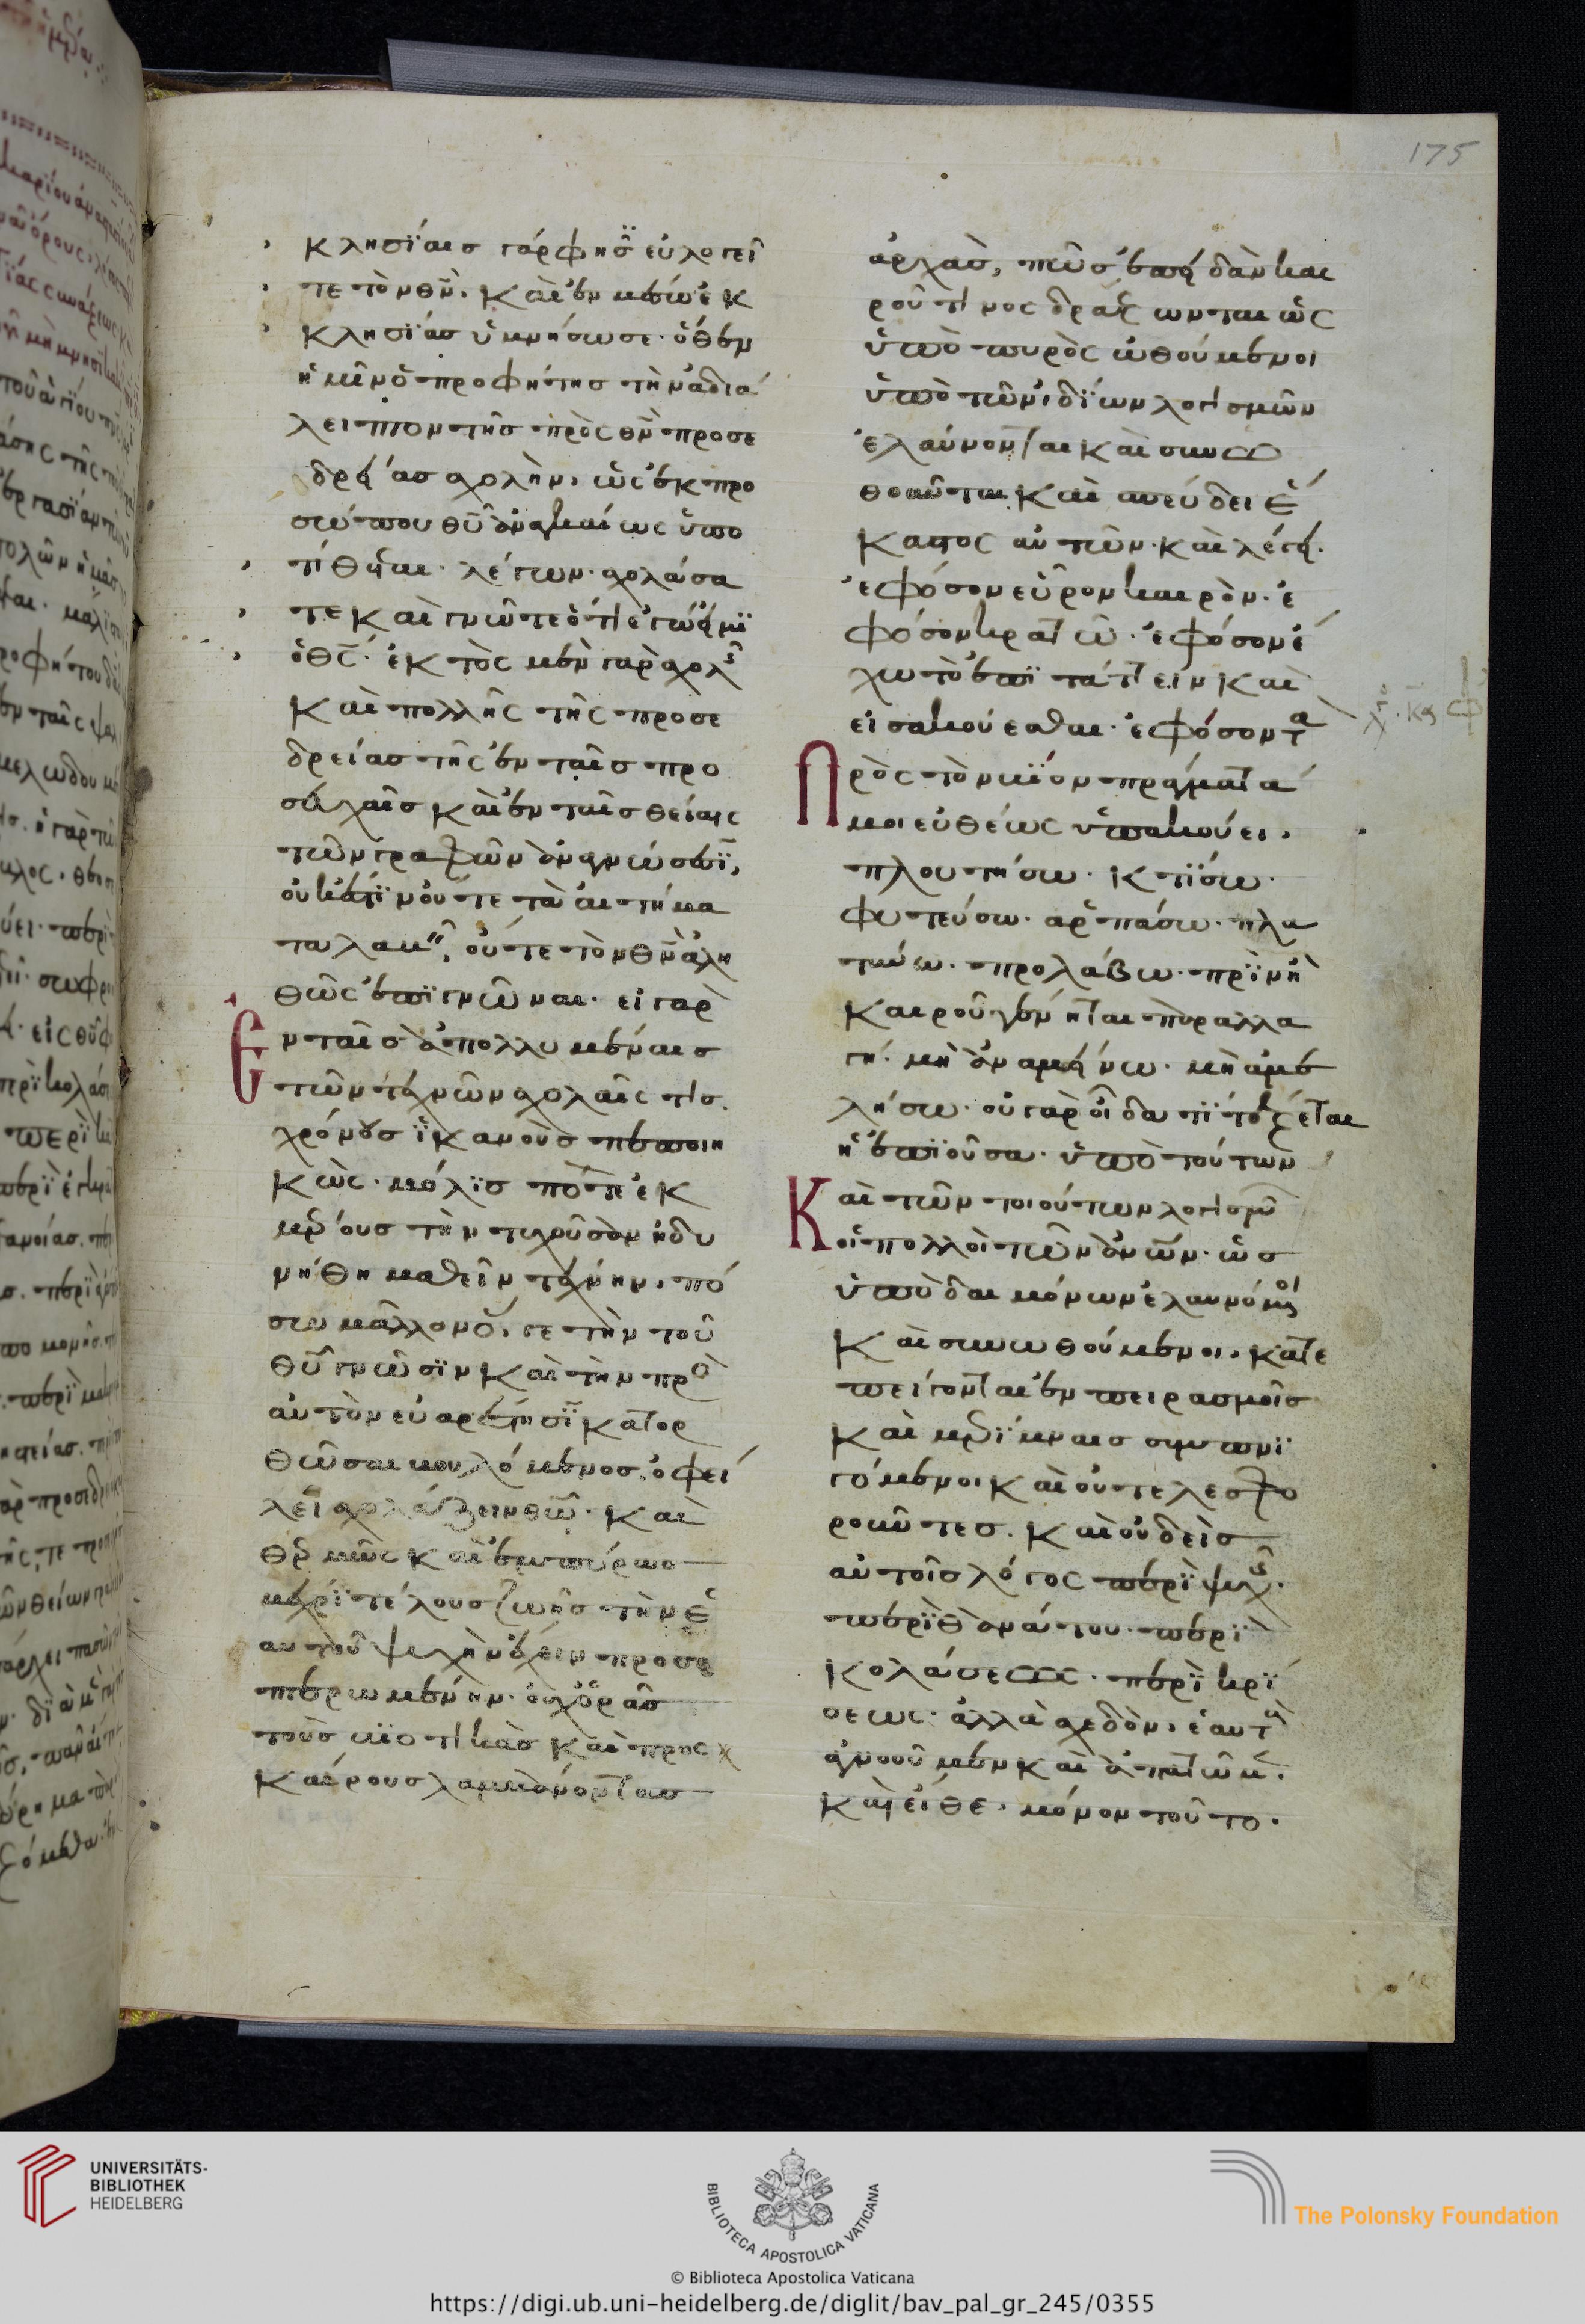 175
κλησίαις γάρ φησϊ εὐλογεῖ
τε τὸν θν̄. καὶ ἐν μέσω ἐκ
κλησίας ὑμνήσω σε. ὅθεν
ἡμῖν ὁ προφήτης τὴν ἀδιά
λειπτον τῆς πρὸς θν̄ προσε
δρείας σχολὴν, ὡς ἐκ προ
σώπου θῡ ἀναγκαίως ὑπο
τίθεται. λέγων. σχολάσα
τε καὶ γνῶτε ὅτι ἐγώ εἰμϊ
ὁ θς̄. ἐκτὸς μὲν γὰρ σχολῆς
καὶ πολλῆς τῆς προσε
δρείας τῆς ἐν ταῖς προ
σευχαῖς καὶ ἐν ταῖς θείαις
τῶν γραφῶν ἀναγνώσεσϊ,
οὐκ ἔστϊν οὔτε τὰ αἰτήμα
τα λαβεῖν, οὔτε τὸν θν̄ ἀλη
θῶς ἐπϊγνῶναι. εἰ γὰρ
Εν ταῖς ἀπολλυμέναις
τῶν τεχνῶν σχολαῖς τὶς
χρόνους ϊκανοὺς πεποιη
κὼς. μόλϊς ποτὲ ἐκ
μέρους τὴν τυχοῦσαν ἠδυ
νήθη μαθεῖν τέχνην, πό
σω μᾶλλον ὅ γε τὴν τοῦ
θῡ γνῶσϊν καὶ τὴν πρὸς
αὐτὸν εὐαρέστησϊν κατορ
θῶσαι βουλόμενος. ὀφεί
λει σχολάζειν θῶ. καὶ
θερμῶς καὶ ἐμπύρως
μέχρϊ τέλους ζωῆς τὴν ἑ
αυτοῦ ψυχὴν ἔχειν προσε
πτερωμένην. οὐχ ὁρᾶς
τοὺς βιοτικὰς καὶ προς
καίρους λαμβάνοντας
ἀρχὰς, πῶς ἐπειδὰν και
ροῦ τϊνος δράξωνται ὡς
ὑπὸ πυρὸς ὠθούμενοι
ὑπὸ τῶν ἰδϊων λογισμῶν
ἐλαύνονται καὶ συνω
θοῦνται. καὶ σπεύδει ἕ
καστος αὐτῶν. καὶ λέγει.
ἐφόσον εὗρον καιρὸν. ἐ
φόσον κρατῶ. ἐφόσον ἔ
χω τὸ ἐπϊτάττειν καὶ
εἰσακούεσθαι. ἐφόσον τὰ
Πρὸς τὸν βίον πράγματά
μοι εὐθέως ὑπακούει.
πλουτήσω. κτϊσω.
φυτεύσω. ἁρπάσω. πλα
τύνω. προλάβω. πρϊν ἢ
καιροῦ γένηται παραλλα
γή. μὴ ἀναμείνω. μὴ ἀμε
λήσω. οὐ γὰρ οἶδα τϊ τέξεται
ἡ ἐπϊοῦσα. ὑπὸ τούτων
Καὶ τῶν τοιούτων λογισμῶν
οἱ πολλοὶ τῶν ἀνων̄. ὡς
ὑπὸ δαιμόνων ἐλαυνόμενοι
καὶ συνωθούμενοι. κατε
πείγονται ἐν πειρασμοῖς
καὶ μερϊμναις συμπνϊ
γόμενοι καὶ οὐ τελεσφο
ροῦντες. καὶ οὐδεὶς
αὐτοῖς λόγος περὶ ψυχῆς.
περϊ θανάτου. περϊ
κολάσεως. περὶ κρϊ
σεως. ἀλλὰ σχεδὸν, ἑαυτὰ
ἀγνοοῦμεν καὶ ἀπατῶμεν.
καὶ εἴθε. μόνον τοῦτο.
UNIVERSITÄTS-
BIBLIOTHEK
HEIDELBERG
BIBLIOTECA APOSTOLICA VATICANA
The Polonsky Foundation
© Biblioteca Apostolica Vaticana
https://digi.ub.uni-heidelberg.de/diglit/bav_pal_gr_245/0355